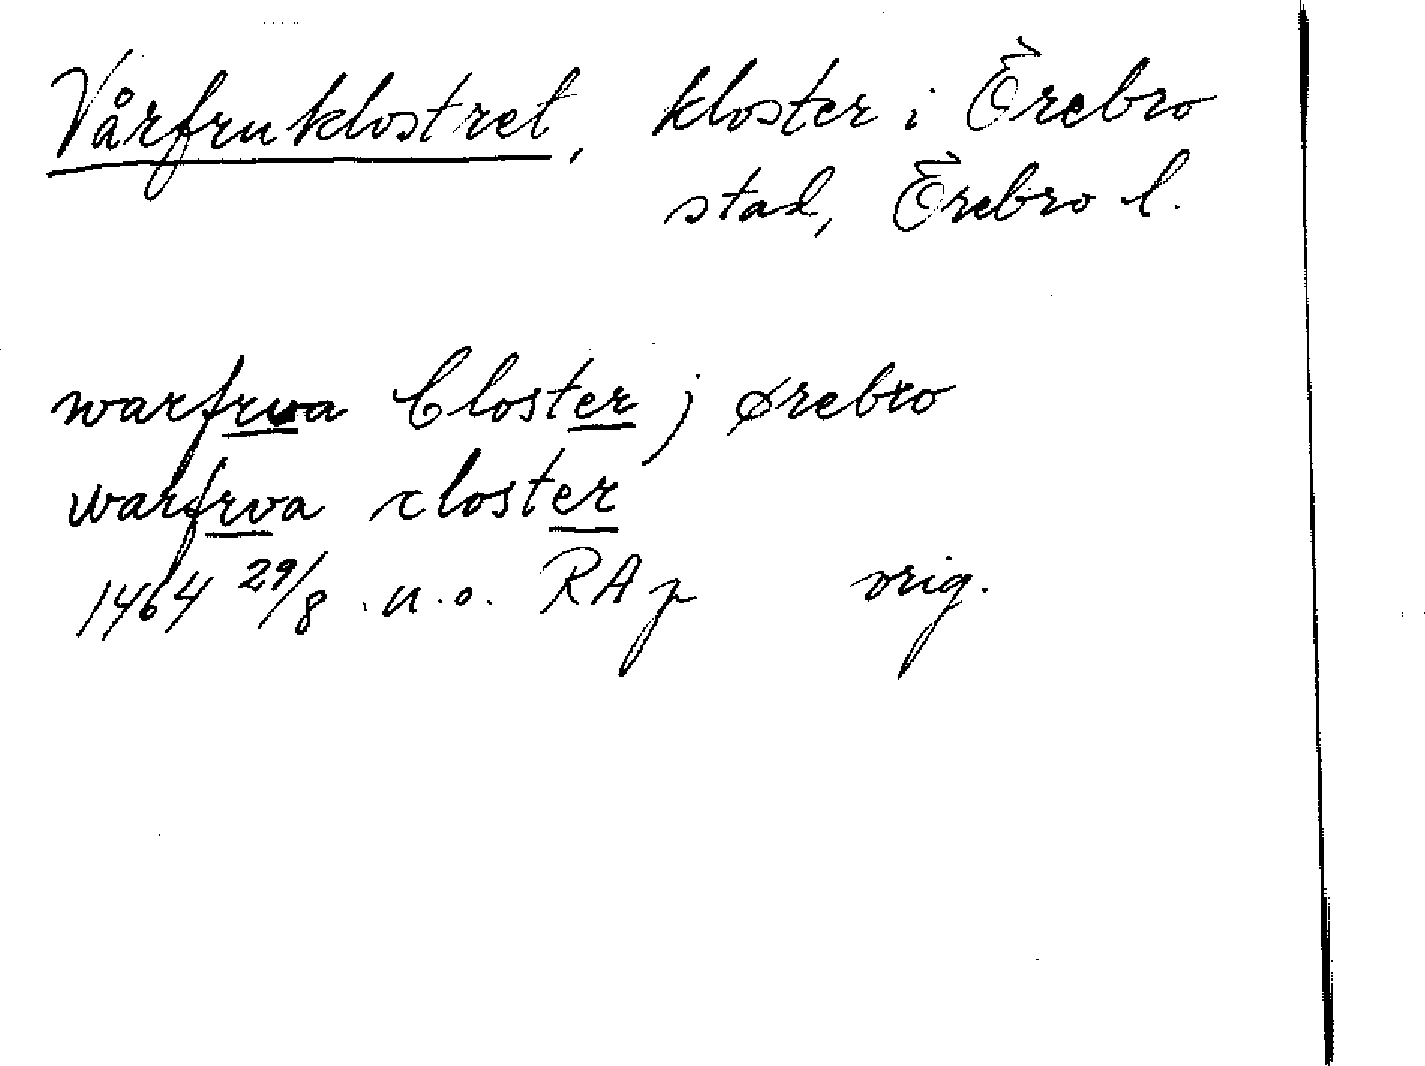 Vårfruklostret, kloster i Örebro
stad, Örebro l.
warfrwa Closter j ørebro
warfrva closter
1464 29/8 . u.o. RAp orig.